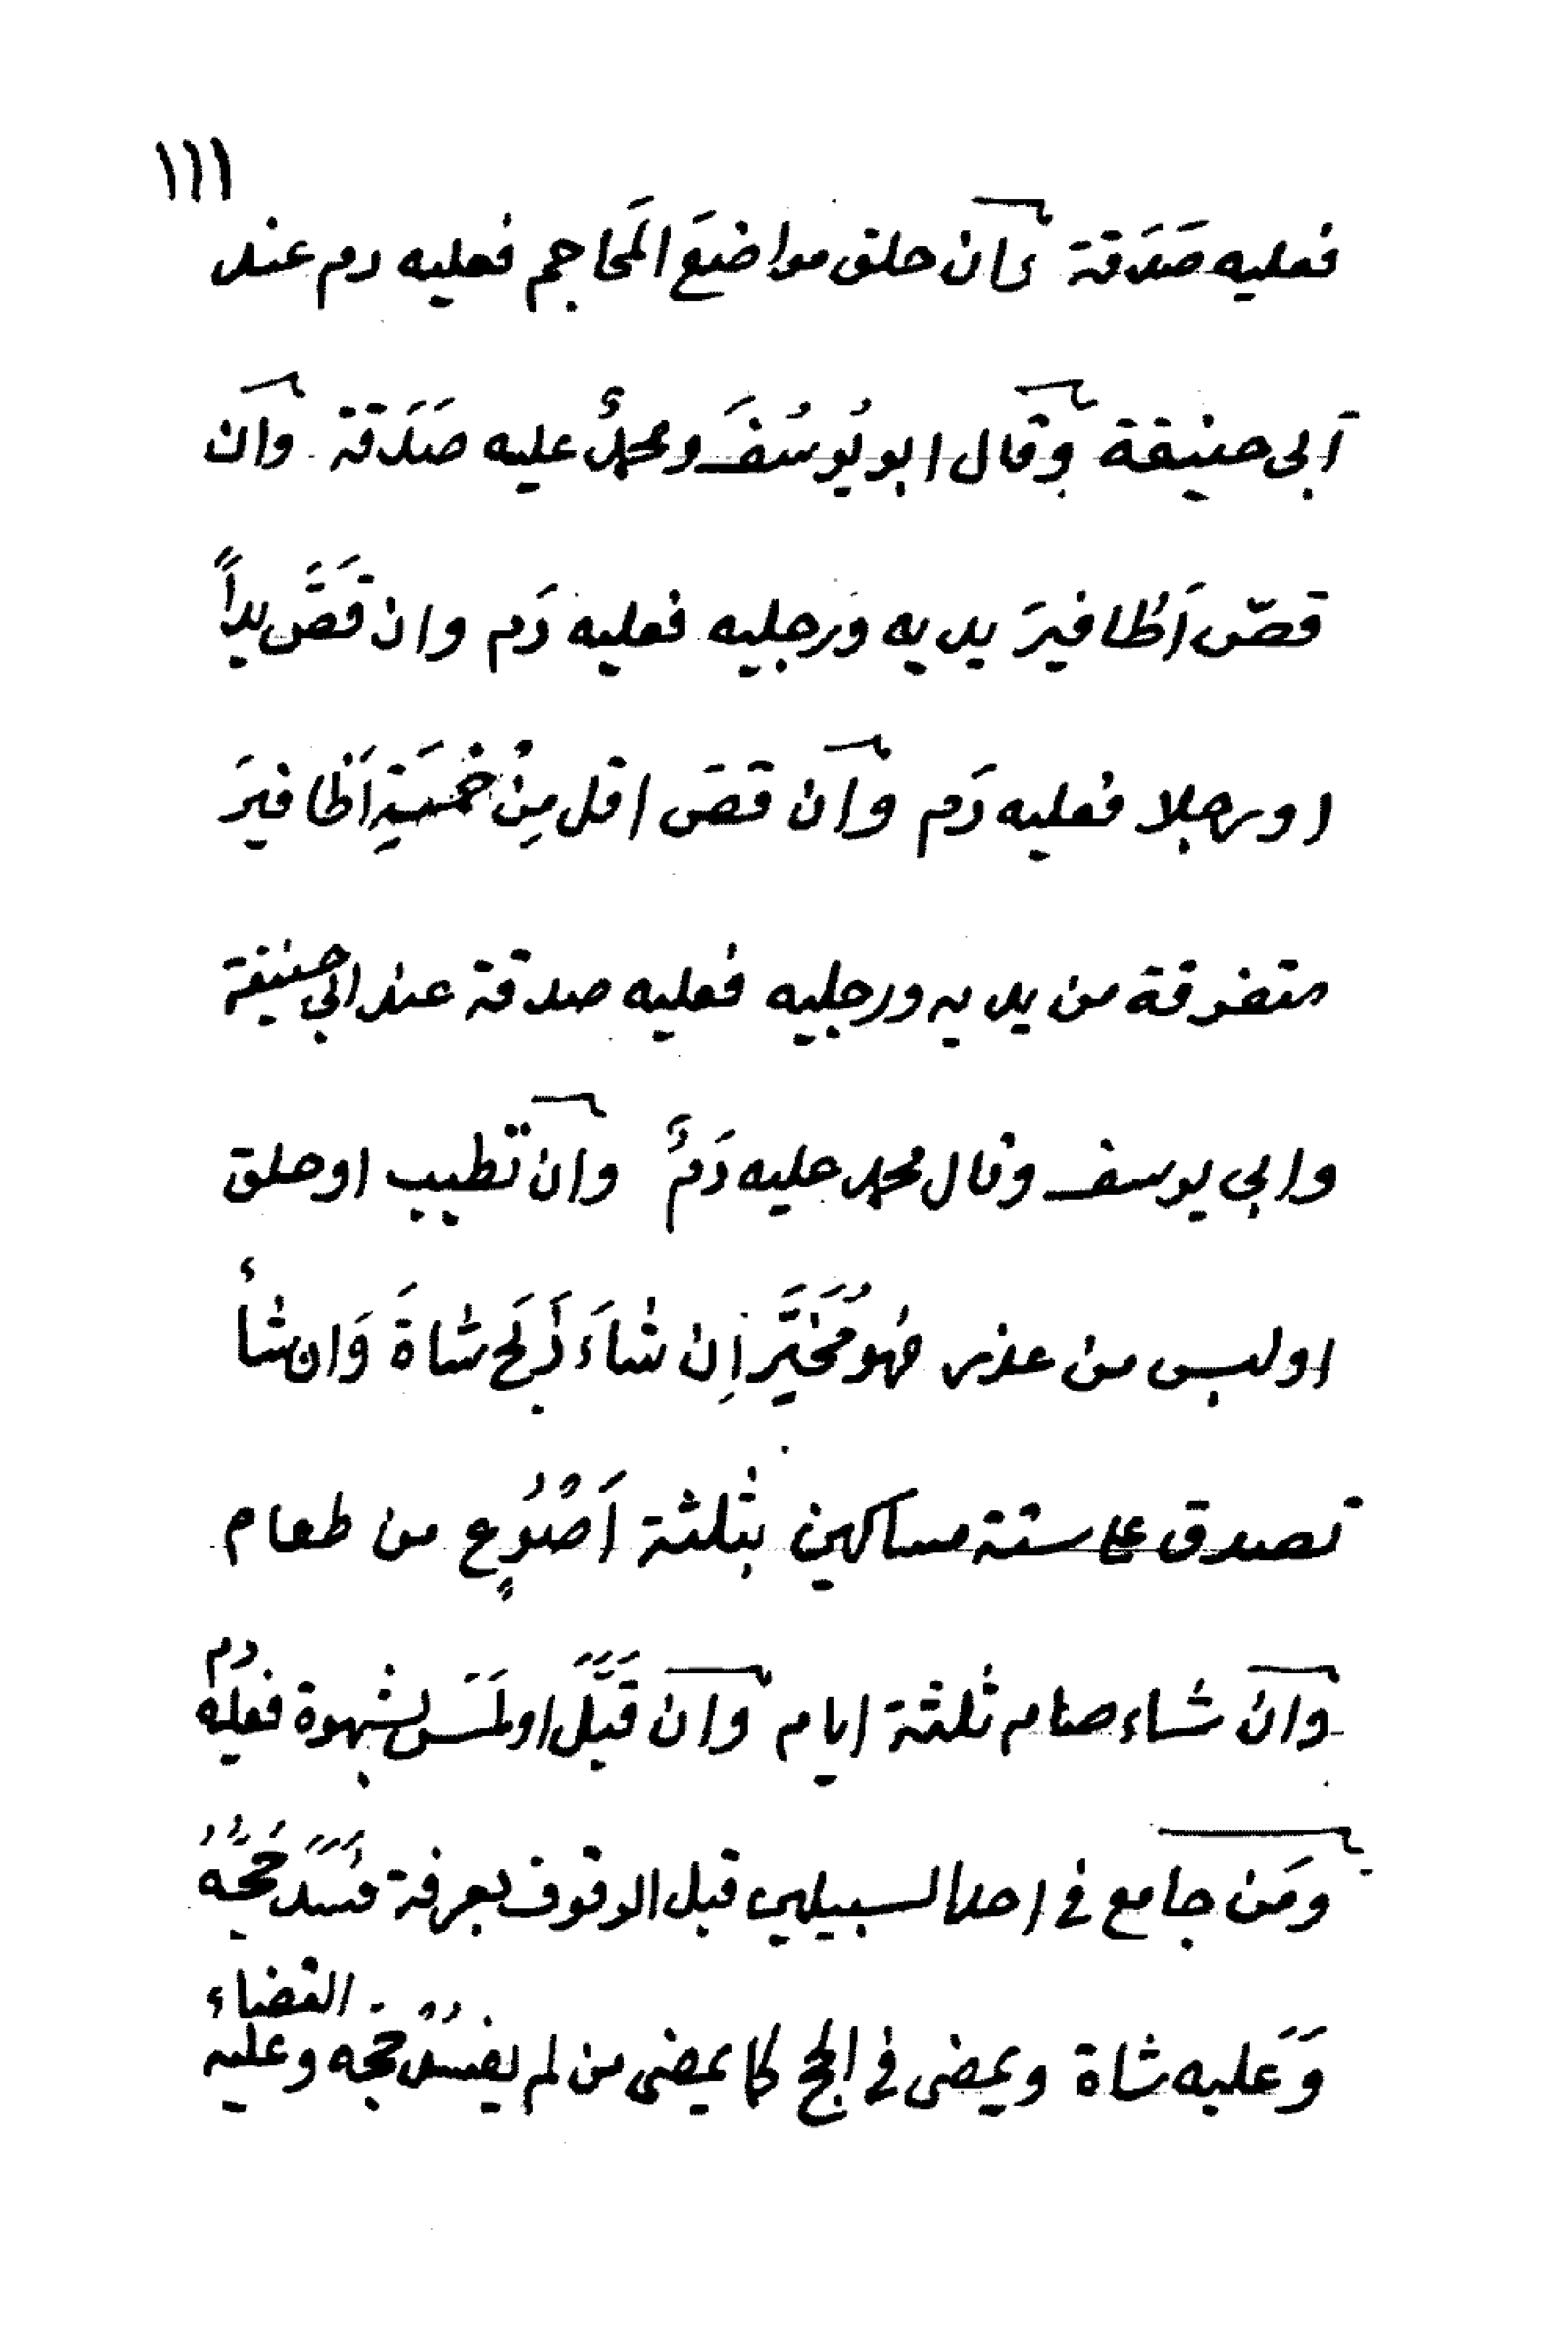 ١١١
فعليه صَدَقة وان حلق مواضعَ المَحاجم فعليه دم عند
ابى حنيفة وقال ابو يُوسُفَ ومحمدٌ عليه صَدَقة وان
قصّ اَظافيرَ يديه وَرجليه فعليه دَم وان قَصَّ يداً
اورجلا فعليه دَم وان قصَ اقل مِنْ خمسَةِ اَظافيرَ
متفرقة من يديه ورجليه فعليه صدقة عند ابي حنيفة
وابي يوسف وقال محمد عليه دَمٌ وان تطيب اوحلق
اولبس من عذر فهو مُخَيَّر اِن شاَءَ ذَبَحَ شاةَ وَان شاءُ
تصدق على ستة مساكين بثلثة اَصْوُعٍ من طعام
وان شاء صام ثلثة ايام وان قَبَّلَ اولمَسَ بشهوة فعليه دم
ومَن جامع فى احد السبيلين قبل الوقوف بعرفة فَسَدَ حَجُّهُ
وَعَليه شاة ويمضى فى الحج كما يمضى من لم يفسُدْ حجه وعليه القضاء